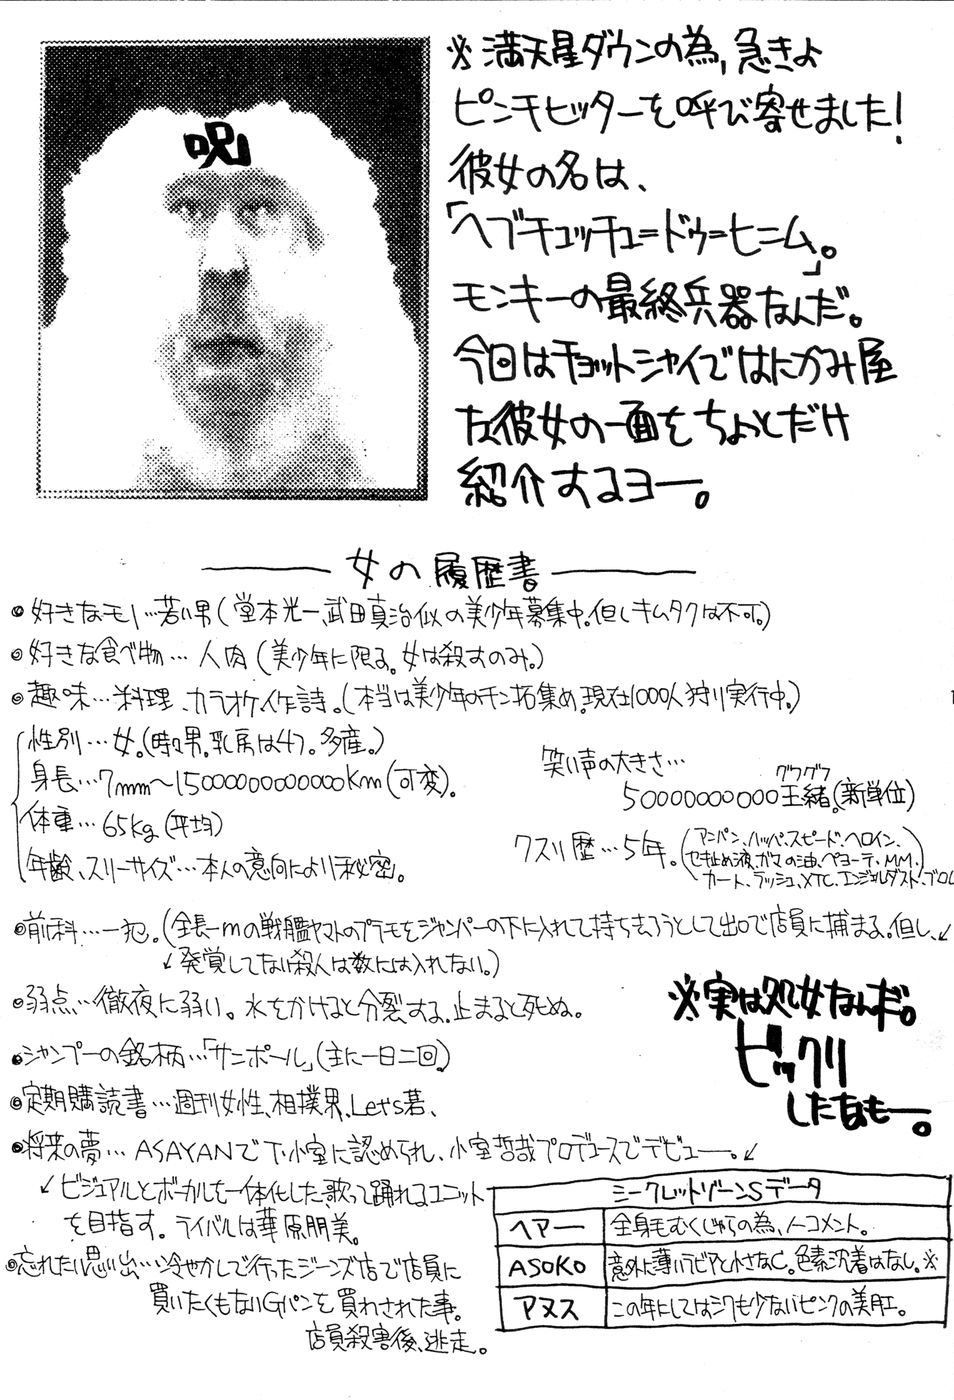 呪
※満天星ダウンの為、急きょ
ピンチヒッターを呼び寄せました!
彼女の名は、
「ヘブチュッチュ=ドゥ=ヒニム」。
モンキーの最終兵器なんだ。
今回はチョットシャイではにかみ屋
な彼女の一面をちょっとだけ
紹介するヨー。
女の履歴書
●好きなモノ…若い男(堂本光一、武田真治似の美少年募集中。但しキムタクは不可。)
●好きな食べ物…人肉(美少年に限る。女は殺すのみ。)
●趣味…料理、カラオケ、作詩。(本当は美少年のチン拓集め。現在1000人狩り実行中。)
性別…女。(時々男。乳房は47。多産。)
身長…7mm〜1500000000000Km(可変)。
体重…65kg(平均)
年齢、スリーサイズ…本人の意向により秘密。
笑い声の大きさ…
グワグワ
50000000000王緒。(新単位)
クスリ歴…5年。(アンパン、ハッパ、スピード、ヘロイン、
セキ止め液、ガマの油、ペヨーテ、MM、
カート、ラッシュ、XTC、エンジェルダスト、ブロ
●前科…一犯。(全長一mの戦艦ヤマトのプラモをジャンパーの下に入れて持ち去ろうとして出口で店員に捕まる。但し、↙
↙発覚してない殺人は数には入れない。)
●弱点…徹夜に弱い。水をかけると分裂する。止まると死ぬ。
●シャンプーの銘柄…「サニポール」(主に一日二回)
●定期購読書…週刊女性、相撲界、Let's若、
●将来の夢…ASAYANで下小室に認められ、小室哲哉プロデュースでデビュー。↙
↙ビジュアルとボーカルを一体化した、歌って踊れるユニット
を目指す。ライバルは華原朋美。
●忘れたい思い出…冷やかしで行ったジーンズ店で店員に
買いたくもないGパンを買わされた事。
店員殺害後、逃走。
※実は処女なんだ。
ビックリ
したなもー。
シークレットゾーンSデータ
ヘアー 全身毛むくじゃらの為、ノーコメント。
ASOKO 意外に薄いラビアと小さなC。色素沈着はなし。※
アヌス この年にしてはシワも少ないピンクの美肛。